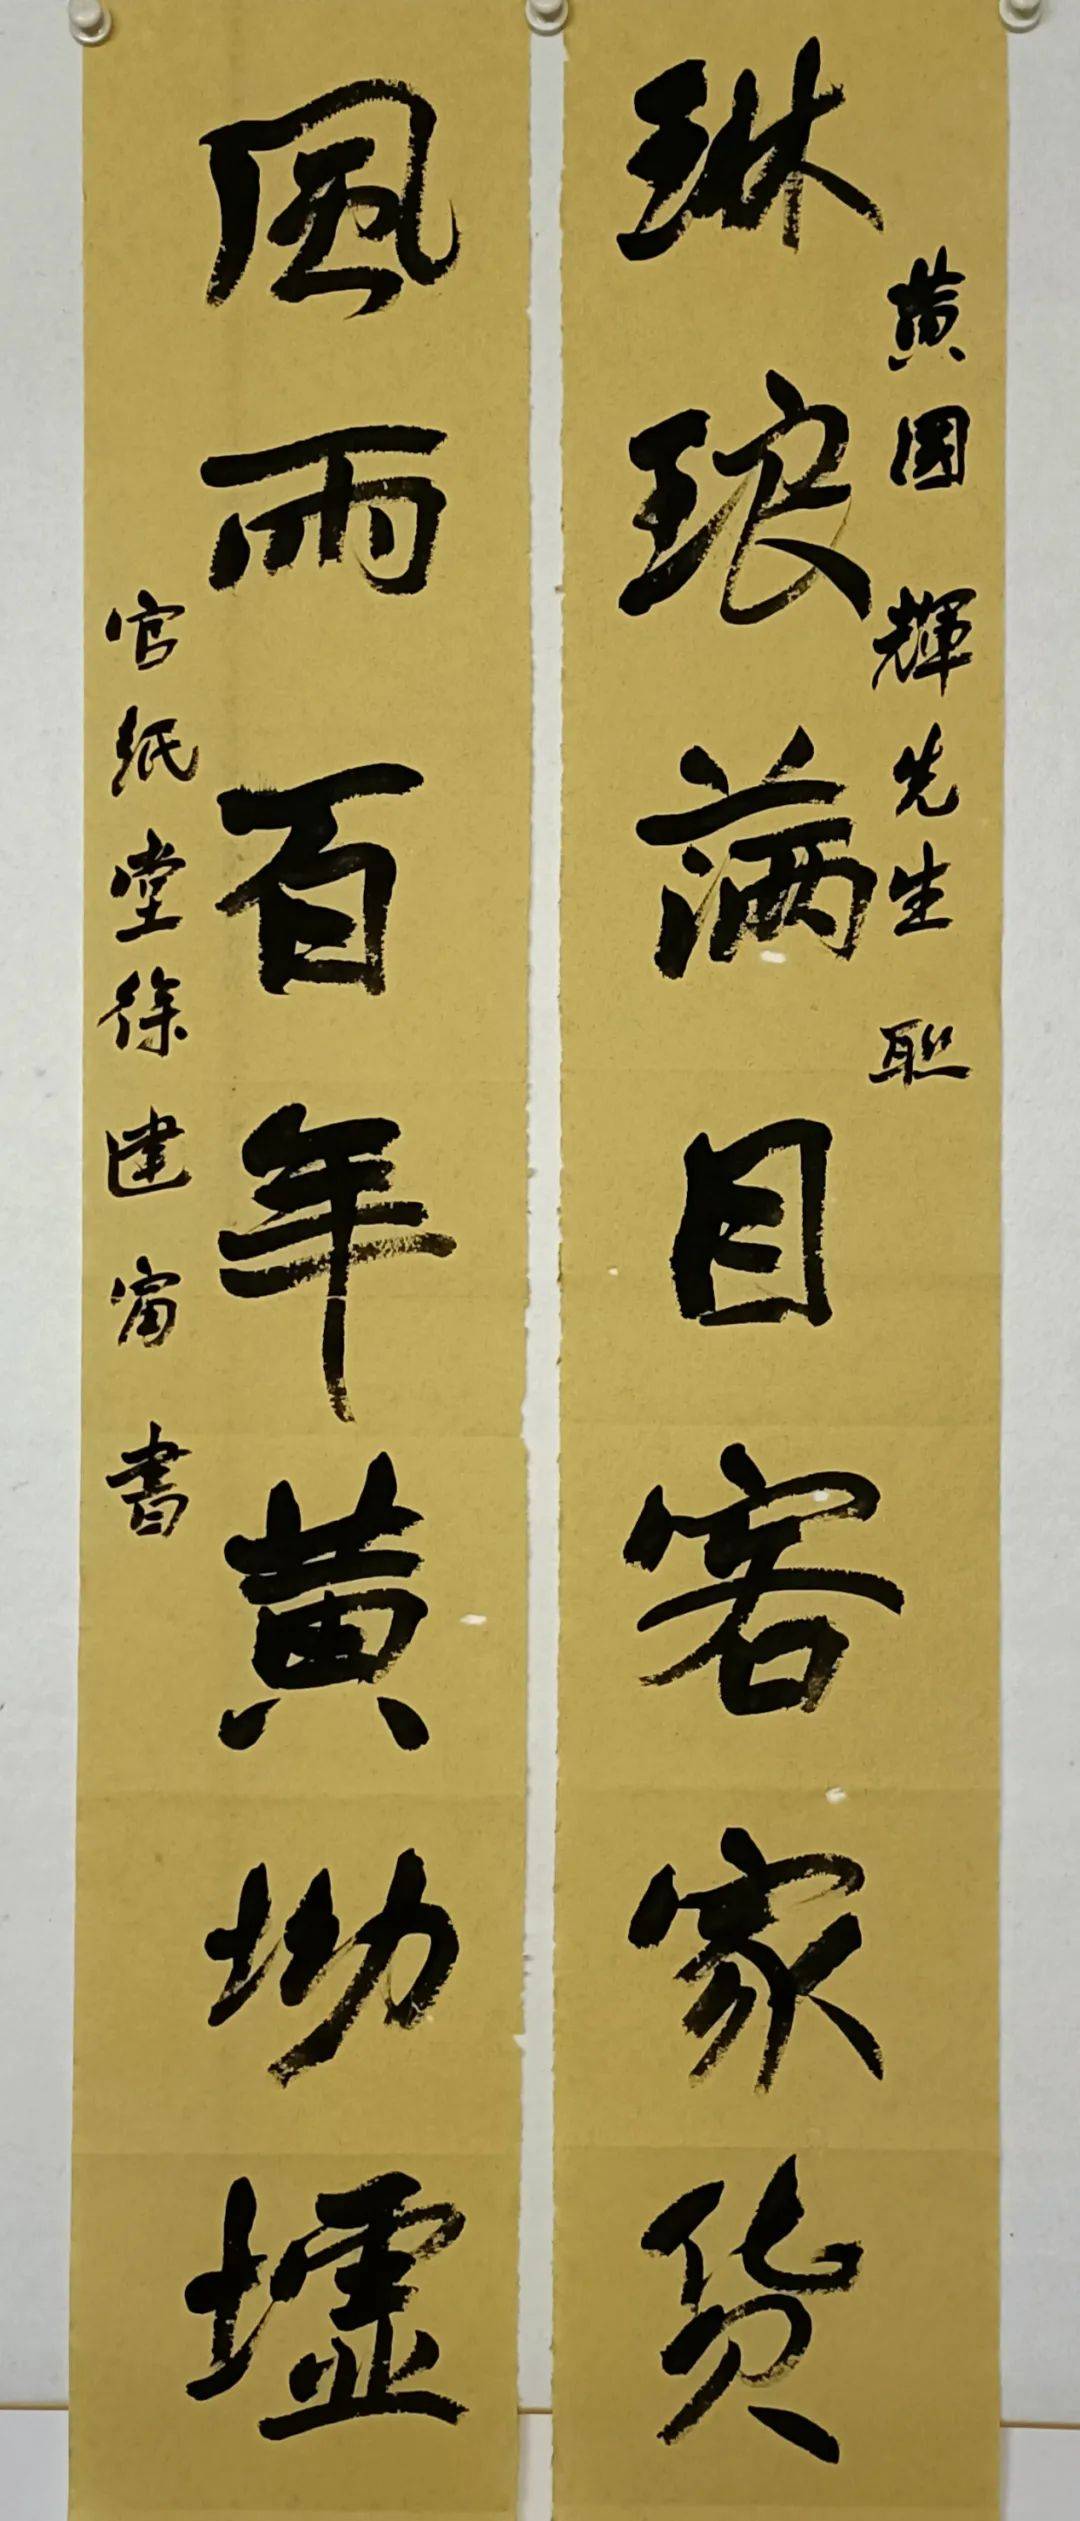 黄國輝先生联
琳琅满目客家货
風雨百年黄坳墟
官紙堂徐建甯書